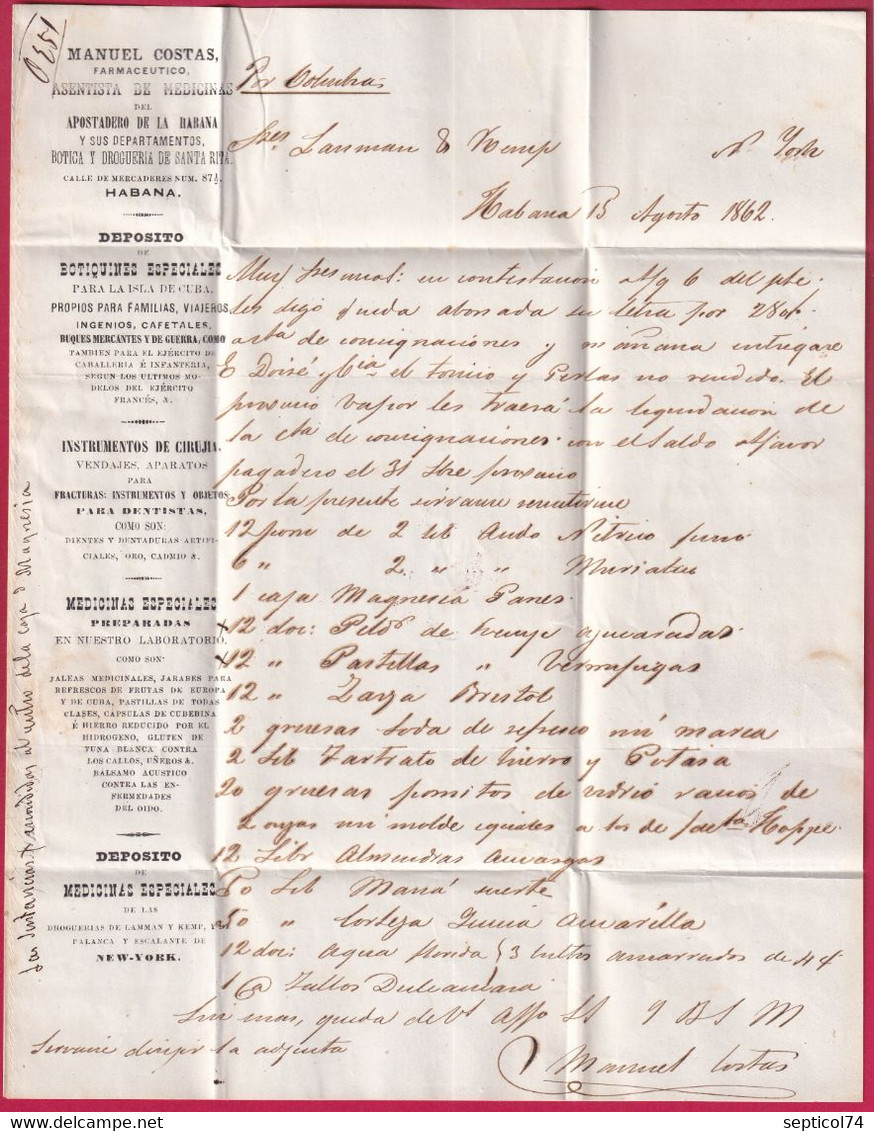 MANUEL COSTAS,
FARMACEUTICO,
ASENTISTA DE MEDICINAS
DEL
APOSTADERO DE LA HABANA
Y SUS DEPARTAMENTOS,
BOTICA Y DROGUERIA DE SANTA RITA.
CALLE DE MERCADERES NUM. 87½.
HABANA.
DEPOSITO
DE
BOTIQUINES ESPECIALES
PARA LA ISLA DE CUBA,
PROPIOS PARA FAMILIAS, VIAJEROS,
INGENIOS, CAFETALES,
BUQUES MERCANTES Y DE GUERRA, COMO
TAMBIEN PARA EL EJÉRCITO DE
CABALLERIA É INFANTERIA,
SEGUN LOS ULTIMOS MO-
DELOS DEL EJÉRCITO
FRANCÉS, &.
INSTRUMENTOS DE CIRUJIA.
VENDAJES, APARATOS
PARA
FRACTURAS: INSTRUMENTOS Y OBJETOS
PARA DENTISTAS,
COMO SON:
DIENTES Y DENTADURAS ARTIFI-
CIALES, ORO, CADMIO &.
MEDICINAS ESPECIALES
PREPARADAS
EN NUESTRO LABORATORIO,
COMO SON:
JALEAS MEDICINALES, JARABES PARA
REFRESCOS DE FRUTAS DE EUROPA
Y DE CUBA, PASTILLAS DE TODAS
CLASES, CAPSULAS DE CUBEBINA
É HIERRO REDUCIDO POR EL
HIDROGENO, GLUTEN DE
TUNA BLANCA CONTRA
LOS CALLOS, UÑEROS &.
BALSAMO ACUSTICO
CONTRA LAS EN-
FERMEDADES
DEL OIDO.
DEPOSITO
DE
MEDICINAS ESPECIALES
DE LAS
DROGUERIAS DE LAMMAN Y KEMP, Y
PALANCA Y ESCALANTE DE
NEW-YORK.
Por Columbia
Sres Lanman & Kemp N. York
Habana 15 Agosto 1862.
Muy Sres mios: en contestacion af/g 6 del pte
les digo queda abonada su letra por
cta de consignaciones y mañana entregare
Doisé y Cia el tonico y Perlas no vendido. El
proximo vapor les traerá la liquidacion de
la cta de consignaciones con el saldo a/favor
pagadero el 31 proximo
Por la presente sirvanse remitirme
12 pom de 2 lib Acido Nitrico puro
6 " 2 " " Muriatico
1 caja Magnesia Panes
12 doc: Pild de Kemp azucaradas
12 " Pastillas " Vermifugas
12 " Zarza Bristol
2 gruesas Soda de refresco mi marca
2 lib Tartrato de hierro y Potasa
20 gruesas pomitos de vidrio vacios de
2 onzas mi molde iguales a los de Hoppe.
12 Libr Almendras amargas
50 Lib Maná suerte
50 " Corteza Quina Amarilla
12 doc: Agua florida 3 bultos amarrados de 4 d
1 @ Tallos Dulcamara
Sin mas, queda de Vs Affo SS Q B S M
Manuel Costas
Sirvanse dirijir la adjunta